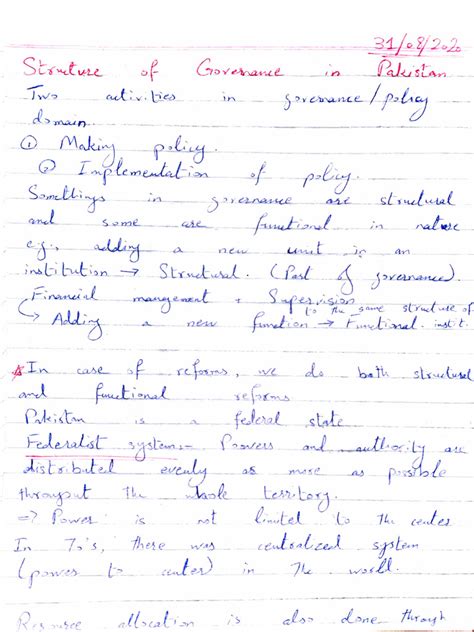 31/08/2020
Structure of Governance in Pakistan
Two activities in governance/policy
domain.
① Making policy.
② Implementation of policy.
Somethings in governance are structural
and some are functional in nature
e.g., adding a new unit in an
institution → Structural. (Part of governance).
Financial mangement + Supervision
to the same structure of
↳ Adding a new function → Functional. instit.
In case of reforms, we do both structural
and functional reforms
Pakistan is a federal state
Federalist system:- Powers and authority are
distributed evenly as more as possible
throughout the whole territory.
=> Power is not limited to the center
In 70's, there was centralized system
(powers to center) in the world.
Resource allocation is also done through